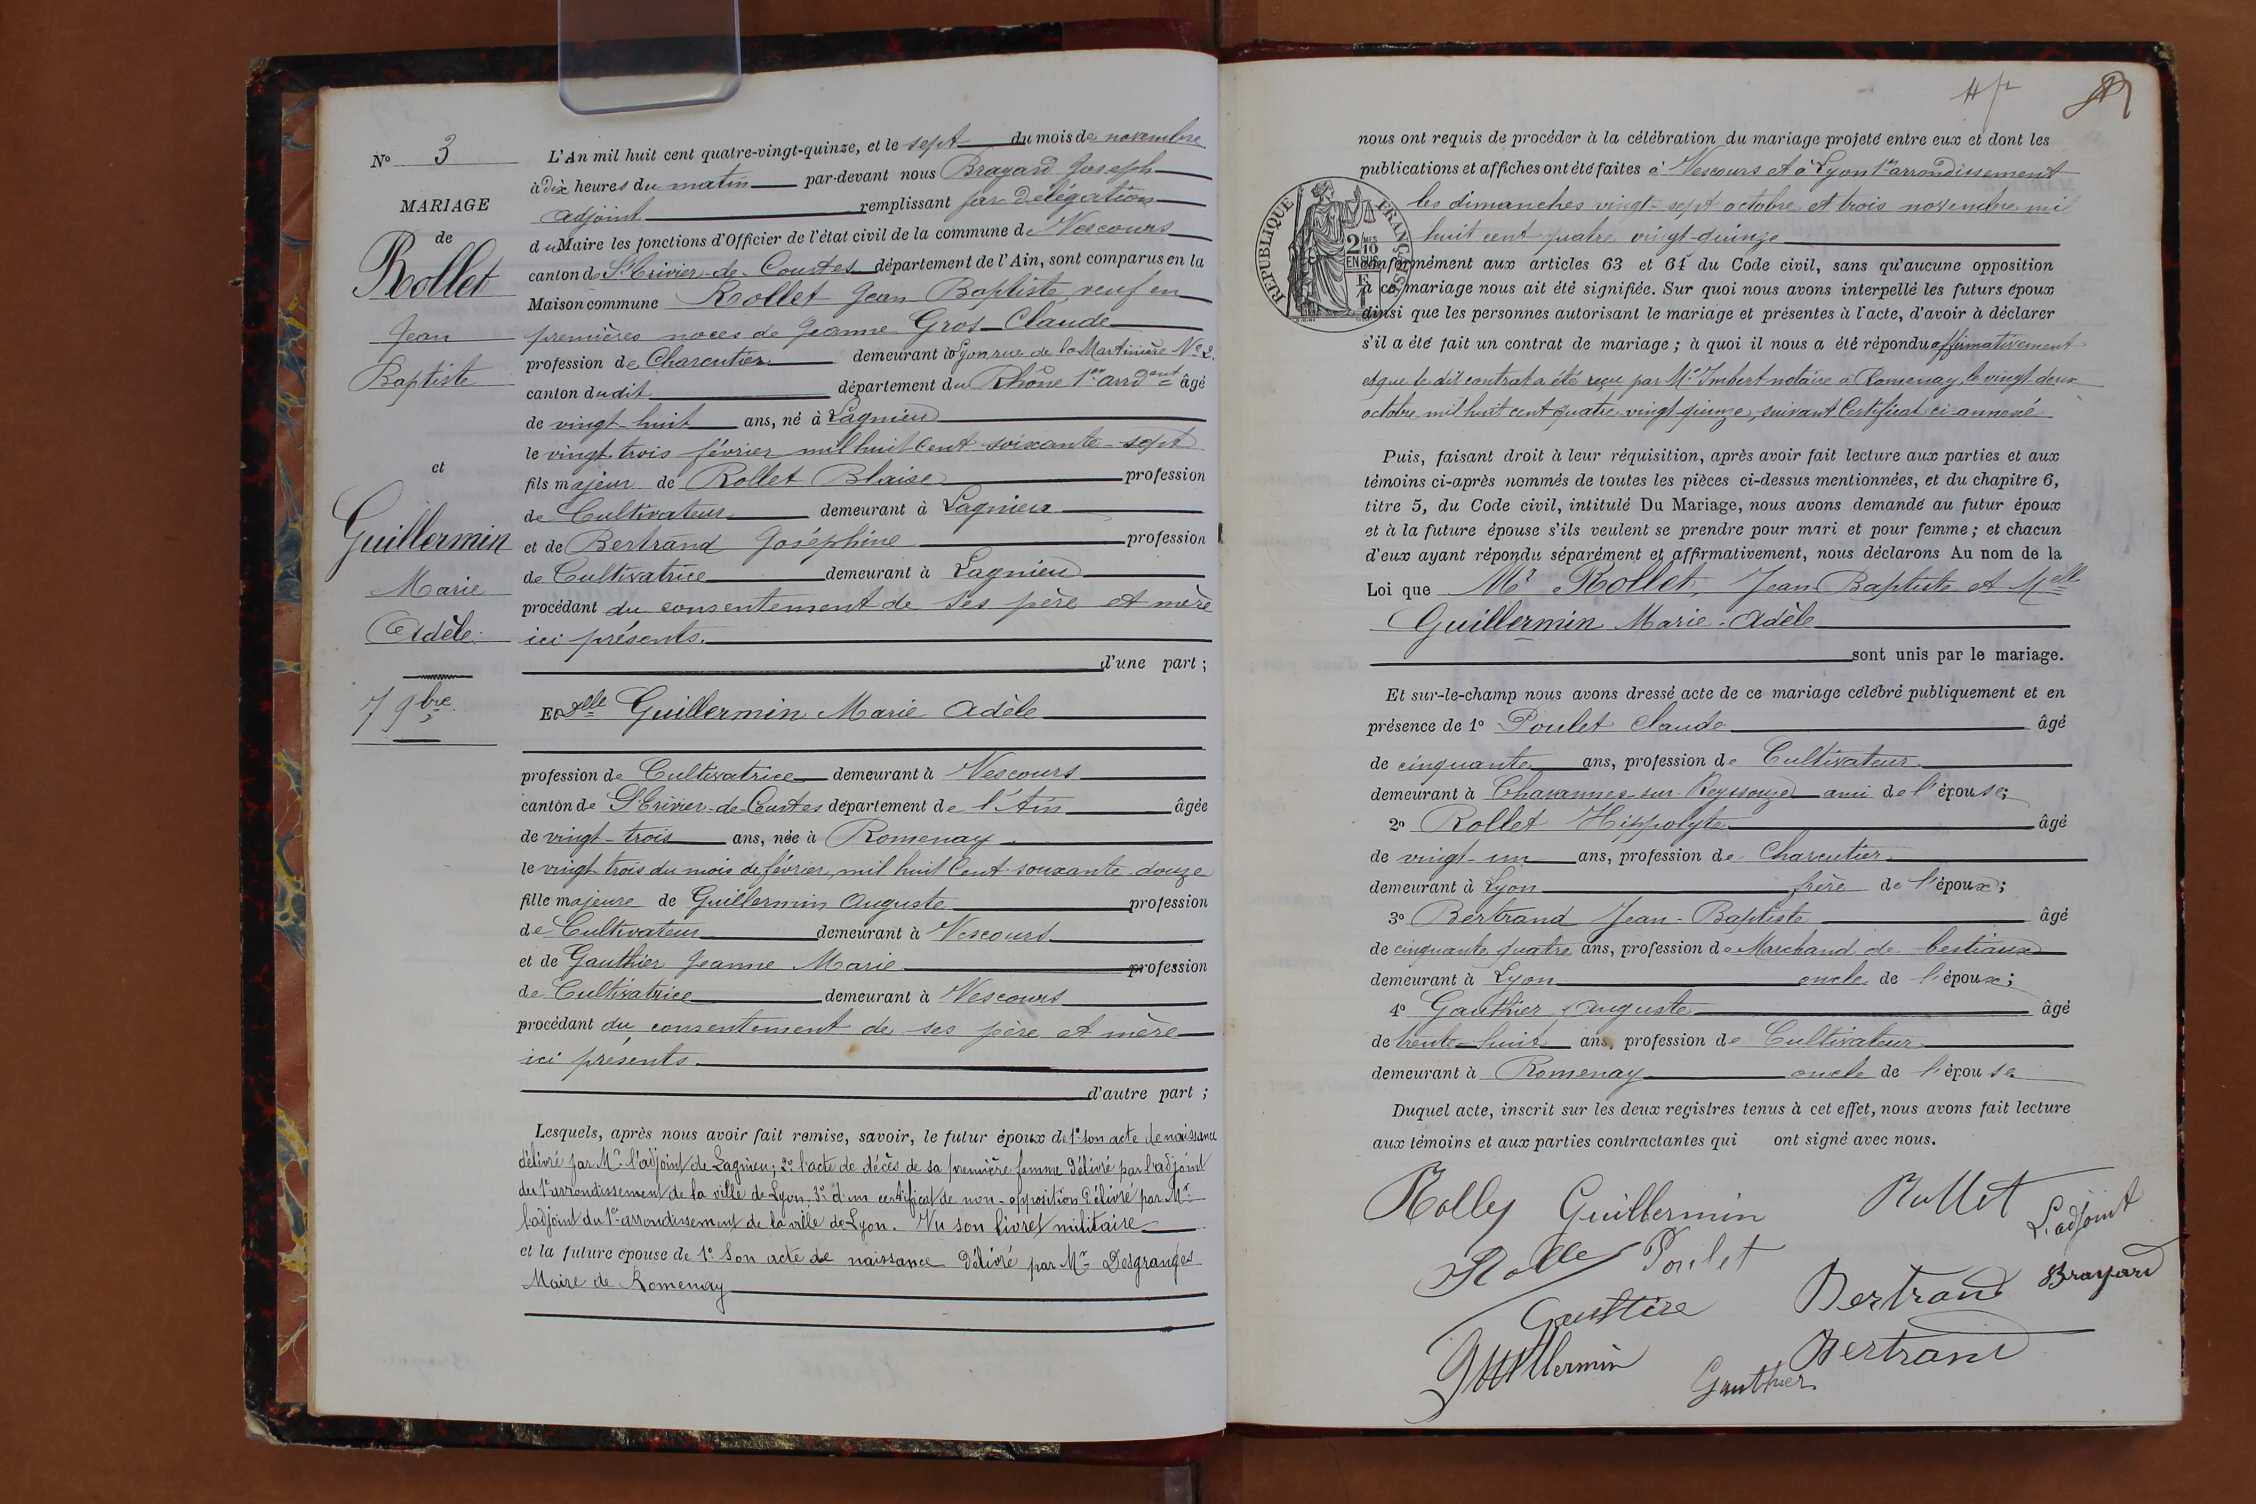 N° 3
MARIAGE
de
Rollet
Jean
Baptiste
et
Guillermin
Marie
Adèle.
7 9bre
L'An mil huit cent quatre-vingt-quinze, et le sept du mois de novembre
à dix heures du matin par-devant nous Brayard Joseph
adjoint remplissant par délégation
du Maire les fonctions d'Officier de l'état civil de la commune de Vescours
canton de St Trivier-de-Courtes département de l'Ain, sont comparus en la
Maison commune Rollet Jean Baptiste, veuf en
premières noces de Jeanne Gros-Claude
profession de Charcutier demeurant à Lyon rue de la Martinière No 2.
canton du dit département du Rhône 1er arrdent âgé
de vingt-huit ans, né à Lagnieu
le vingt trois février mil huit cent soixante-sept
fils majeur de Rollet Blaise profession
de Cultivateur demeurant à Lagnieu
et de Bertrand Joséphine profession
de Cultivatrice demeurant à Lagnieu
procédant du consentement de ses père et mère
ici présents.
d'une part ;
Et Delle Guillermin Marie Adèle
profession de Cultivatrice demeurant à Vescours
canton de St Trivier-de-Courtes département de l'Ain âgée
de vingt-trois ans, née à Romenay
le vingt trois du mois de février, mil huit cent soixante-douze
fille majeure de Guillermin Auguste profession
de Cultivateur demeurant à Vescours
et de Gauthier Jeanne Marie profession
de Cultivatrice demeurant à Vescours
procédant du consentement de ses père et mère
ici présents.
d'autre part ;
Lesquels, après nous avoir fait remise, savoir, le futur époux de 1° son acte de naissance
délivré par Mr l'adjoint de Lagnieu; 2° l'acte de décès de sa première femme délivré par l'adjoint
du 1er arrondissement de la ville de Lyon. 3° d'un certificat de non-opposition délivré par Mr
l'adjoint du 1er arrondissement de la ville de Lyon. Vu son livret militaire
et la future épouse de 1° Son acte de naissance délivré par Mr Desgranges
Maire de Romenay
nous ont requis de procéder à la célébration du mariage projeté entre eux et dont les
publications et affiches ont été faites à Vescours et à Lyon 1er arrondissement
les dimanches vingt-sept octobre et trois novembre mil
huit cent quatre vingt-quinze
conformément aux articles 63 et 64 du Code civil, sans qu'aucune opposition
à ce mariage nous ait été signifiée. Sur quoi nous avons interpellé les futurs époux
ainsi que les personnes autorisant le mariage et présentes à l'acte, d'avoir à déclarer
s'il a été fait un contrat de mariage ; à quoi il nous a été répondu affirmativement
et que le dit contrat a été reçu par Me Imbert notaire à Romenay, le vingt deux
octobre mil huit cent quatre vingt quinze, suivant Certificat ci-annexé
RÉPUBLIQUE FRANÇAISE
2 MES
10
EN SUS
Puis, faisant droit à leur réquisition, après avoir fait lecture aux parties et aux
témoins ci-après nommés de toutes les pièces ci-dessus mentionnées, et du chapitre 6,
titre 5, du Code civil, intitulé Du Mariage, nous avons demandé au futur époux
et à la future épouse s'ils veulent se prendre pour mari et pour femme ; et chacun
d'eux ayant répondu séparément et affirmativement, nous déclarons Au nom de la
Loi que Mr Rollet, Jean Baptiste et Melle
Guillermin Marie-Adèle
sont unis par le mariage.
Et sur-le-champ nous avons dressé acte de ce mariage célébré publiquement et en
présence de 1° Poulet Claude âgé
de cinquante ans, profession de Cultivateur
demeurant à Chavannes-sur-Reyssouze ami de l'épouse;
2° Rollet Hippolyte âgé
de vingt-un ans, profession de Charcutier
demeurant à Lyon frère de l'époux;
3° Bertrand Jean-Baptiste âgé
de cinquante quatre ans, profession de Marchand de bestiaux
demeurant à Lyon oncle de l'époux;
4° Gauthier Auguste âgé
de trente-huit ans, profession de Cultivateur
demeurant à Romenay oncle de l'épouse
Duquel acte, inscrit sur les deux registres tenus à cet effet, nous avons fait lecture
aux témoins et aux parties contractantes qui ont signé avec nous.
Guillermin Rollet L'adjoint
Poulet Bertrand Brayard
Guillermin Gauthier Bertrand